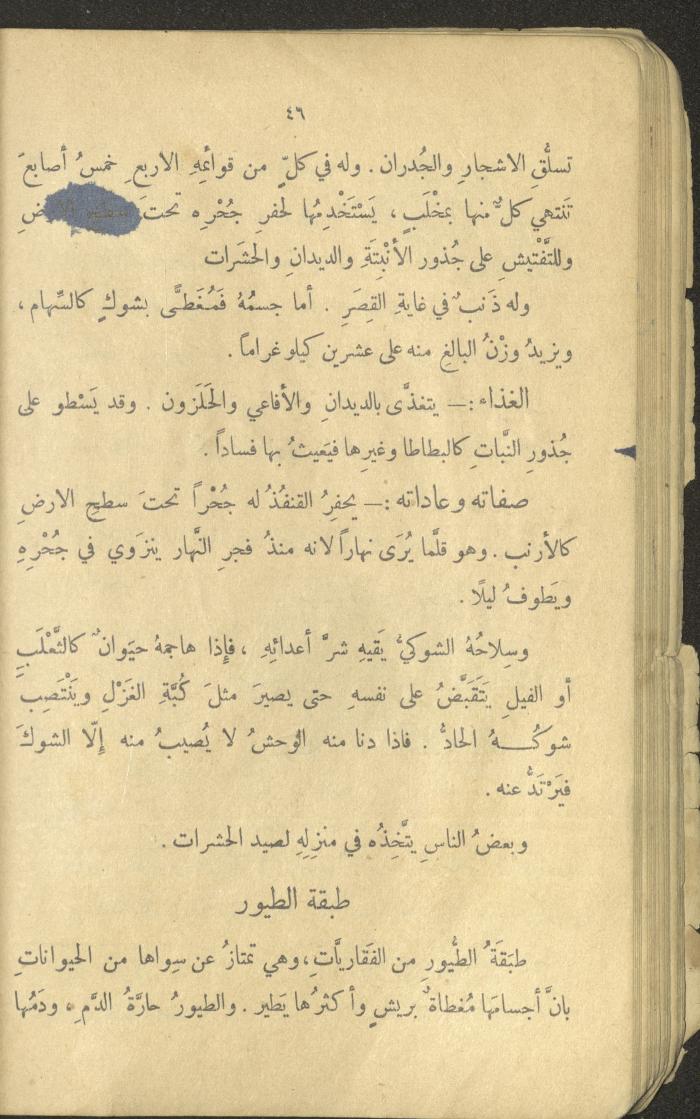 ٤٦
تسلُّقِ الاشجارِ والجُدران . وله في كلٍّ من قوائمِهِ الاربعِ خمسُ أصابعَ
تَنتهي كلٌّ منها بمخْلَبٍ ، يَسْتَخْدِمُها لحفرِ جُحْرِه تحتَ
وللتَّفْتيشِ على جُذور الأنْبِتَةِ والديدانِ والحشَرات
وله ذَنبٌ في غايةِ القِصَرِ . أما جسمُهُ فَمُغَطًّى بشوكٍ كالسِّهام ،
ويزيدُ وزْنُ البالغِ منه على عشرين كيلو غراماً .
الغذاء :— يتغذَّى بالديدانِ والأفاعي والحَلَزون . وقد يَسْطو على
جُذورِ النَّباتِ كالبطاطا وغيرِها فيَعيثُ بها فساداً .
صفاته وعاداته :— يحفِرُ القنفُذُ له جُحْراً تحتَ سطحِ الارضِ
كالأرنب . وهو قلَّما يُرَى نهاراً لانه منذُ فجرِ النَّهار ينزَوي في جُحْرِهِ
ويَطوفُ ليلًا .
وسِلاحُهُ الشوكيُّ يَقيهِ شرَّ أعدائِهِ ، فإِذا هاجمهُ حيَوانٌ كالثَّعْلَبِ
أو الفيلِ يَتَقَبَّضُ على نفسهِ حتى يصيرَ مثلَ كُبَّةِ الغَزْلِ ويَنْتَصِبَ
شوكُـــهُ الحادُّ . فاذا دنا منه الوحشُ لا يُصيبُ منه إلّا الشوكَ
فيَرْتَدُّ عنه .
وبعضُ الناسِ يتَّخِذُه في منزِلِهِ لصيد الحشرات .
طبقة الطيور
طبَقَةُ الطُّيورِ من الفَقاريَّاتِ ، وهي تمتازُ عن سِواها من الحيواناتِ
بانَّ أجسامَها مُغطاةٌ بريشٍ وأكثرُها يَطير . والطيورُ حارَّةُ الدَّمِ ، ودَمُها